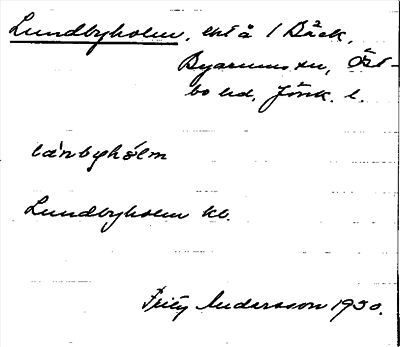 Lundbyholm, lht å 1 Bäck,
Byarums sn, Öst-
bo hd, Jönk. l.
lánbyhólm
Lundbyholm kb.
Fritz Andersson 1930.